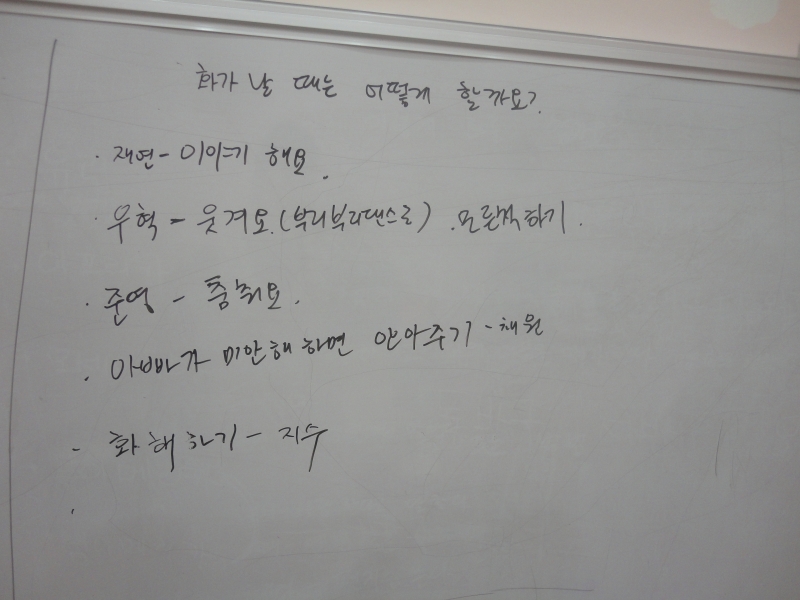 화가 날 때는 어떻게 할까요?
· 재연 - 이야기 해요.
· 우혁 - 웃겨요.(부리부리댄스로) .모른척하기.
· 준영 - 춤춰요.
· 아빠가 미안해하면 안아주기 - 채원
- 화해하기 - 지수
·